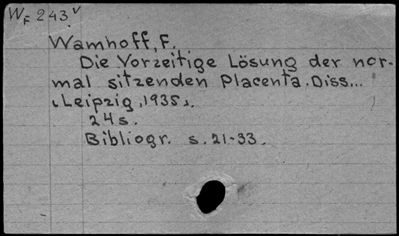 WF 243v
Wamhoff, F.
Die Vorzeitige Lösung der nor-
mal sitzenden Placenta. Diss...
Leipzig, 1935.
24 s.
Bibliogr. s. 21-33.